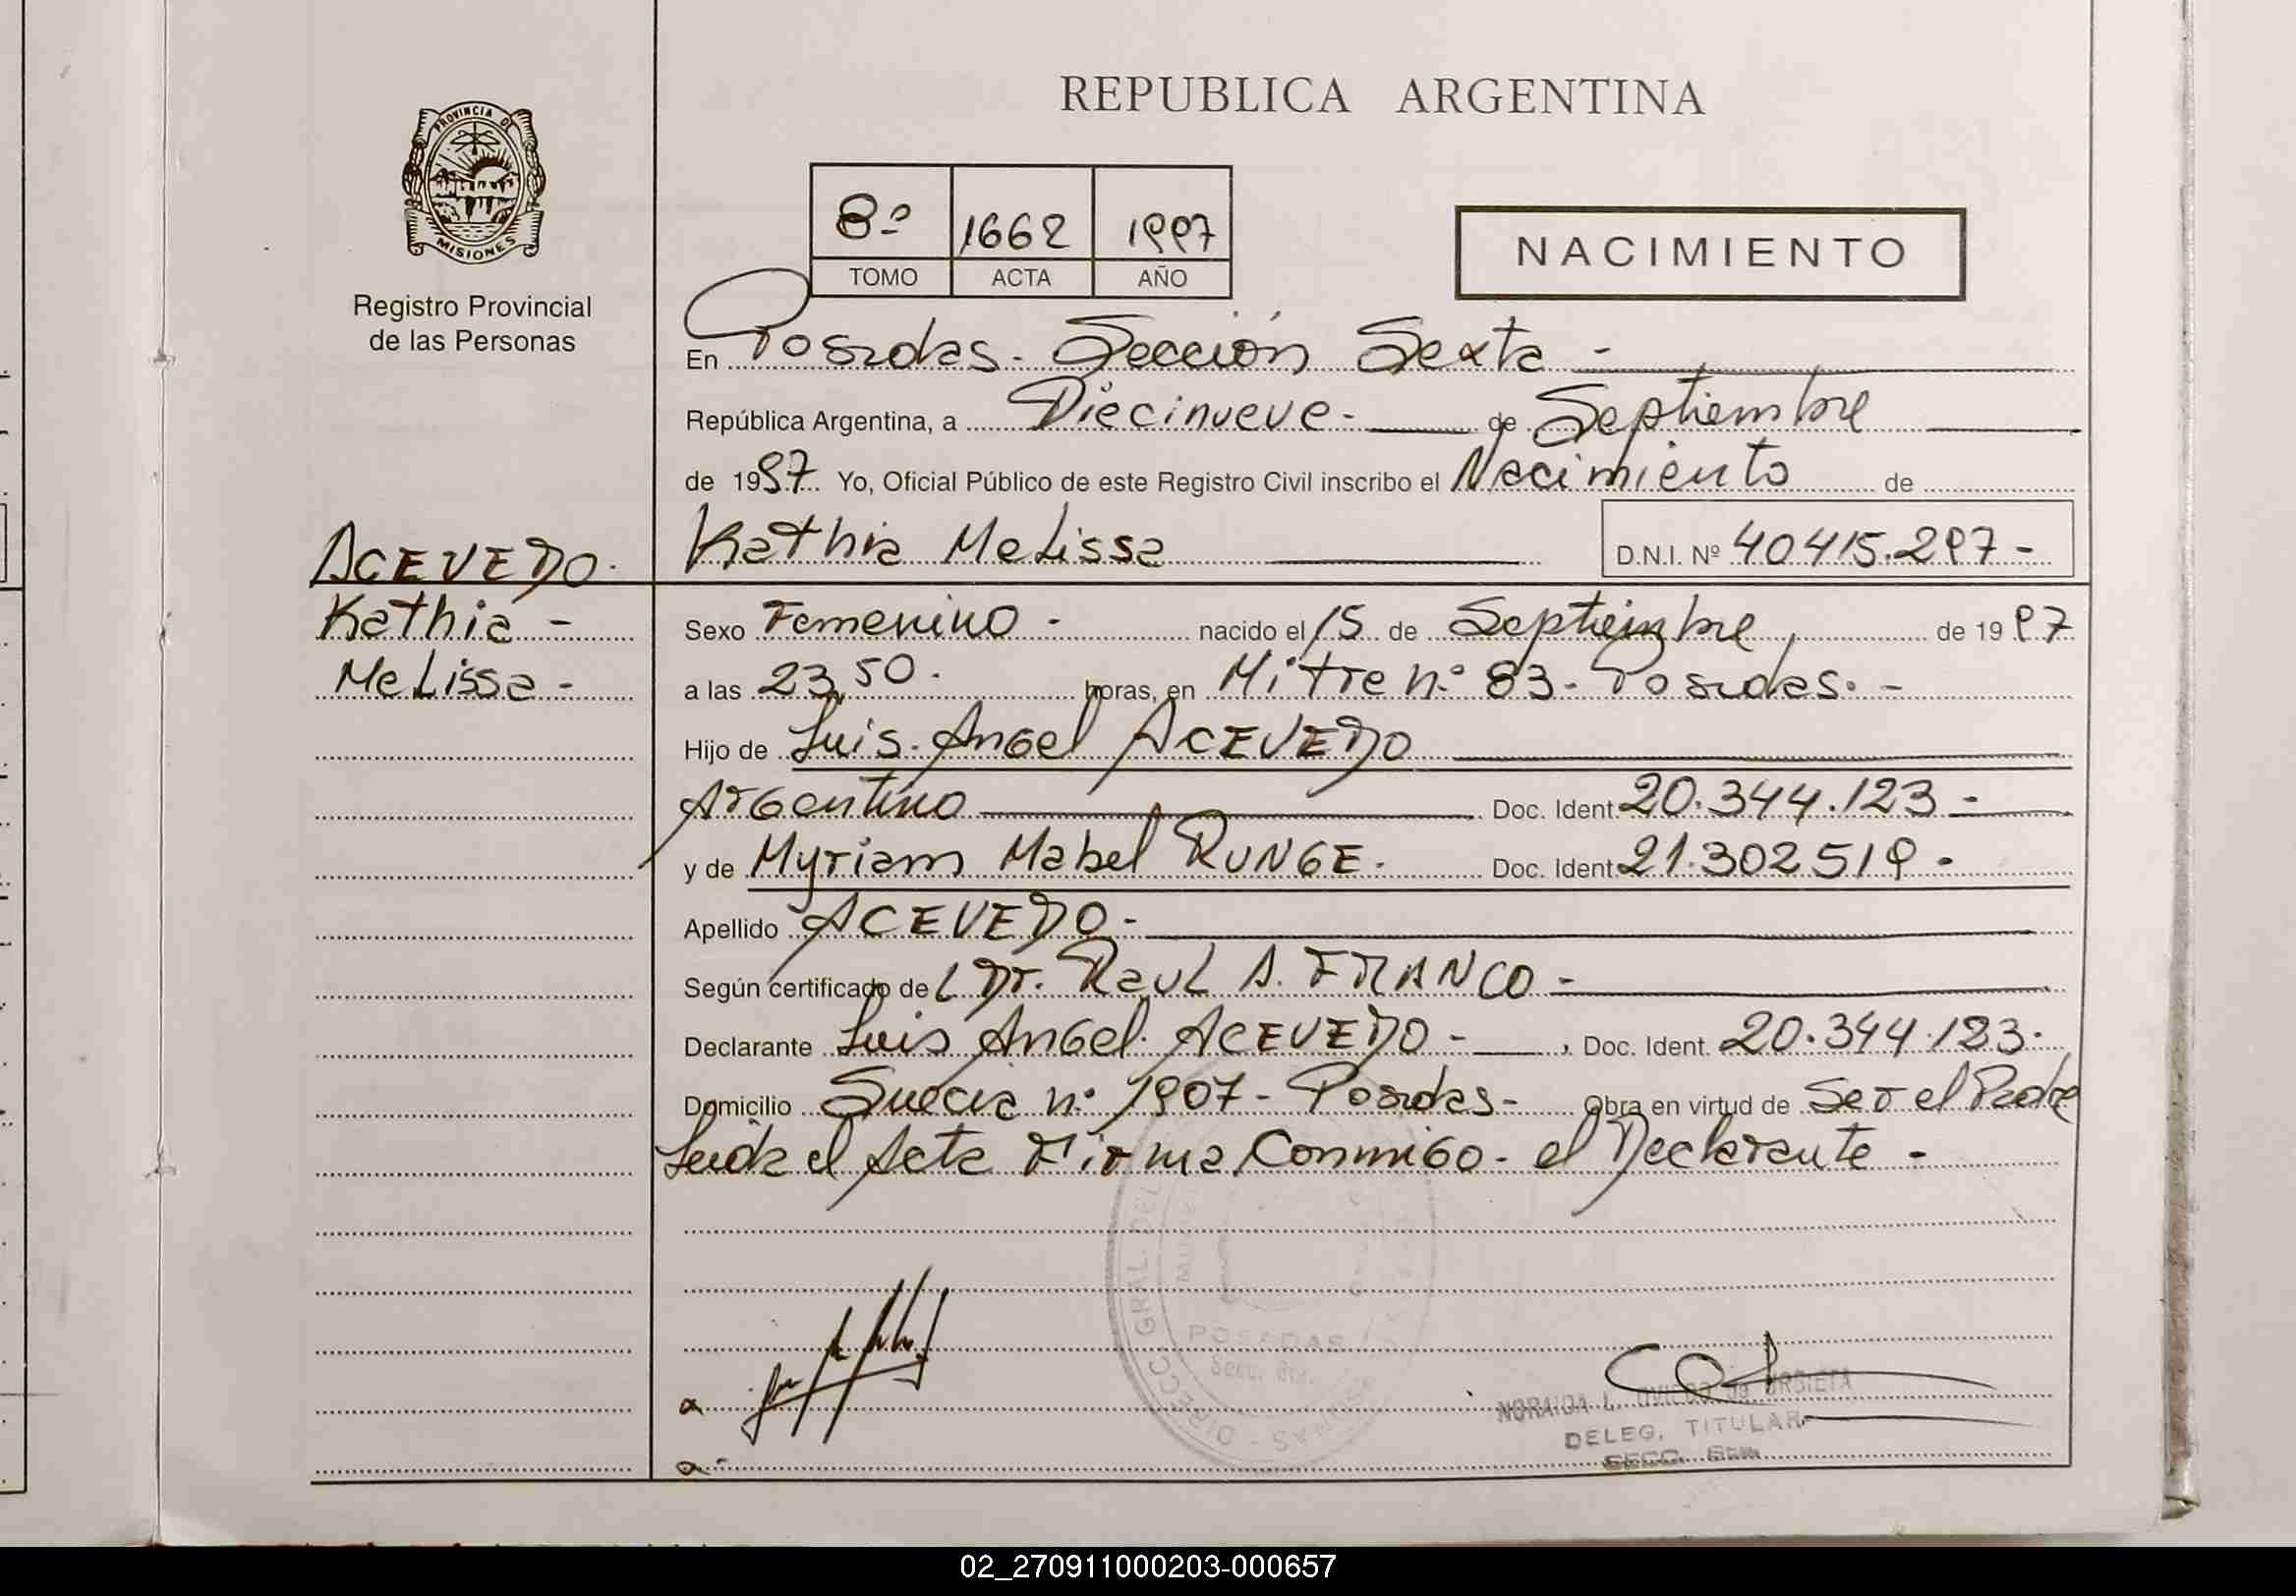 REPUBLICA ARGENTINA
PROVINCIA DE
MISIONES
Registro Provincial
de las Personas
8º 1662 1997
TOMO ACTA AÑO
NACIMIENTO
En Posadas - Sección Sexta -
República Argentina, a Diecinueve - de Septiembre
de 1997 Yo, Oficial Público de este Registro Civil inscribo el Nacimiento de
ACEVEDO - Kathia Melissa D.N.I. Nº 40415.297 -
Kathia - Sexo Femenino - nacido el 15 de Septiembre, de 1997
Melissa - a las 23,50 - horas, en Mitre nº 83 - Posadas. -
Hijo de Luis Angel ACEVEDO
Argentino Doc. Ident. 20.344.123 -
y de Myriam Mabel RUNGE - Doc. Ident. 21.302519 -
Apellido ACEVEDO -
Según certificado de L Dr. Raul A. FRANCO -
Declarante Luis Angel ACEVEDO - , Doc. Ident. 20.344.123.
Domicilio Suecia nº 1907 - Posadas - Obra en virtud de Ser el Padre
Leida el Acta Firma Conmigo - el Declarante -
DIRECC. GRAL. DEL
POSADAS
NORAIDA L. OVIEDO de URBIETA
DELEG. TITULAR
SECC. 6ta
02_270911000203-000657